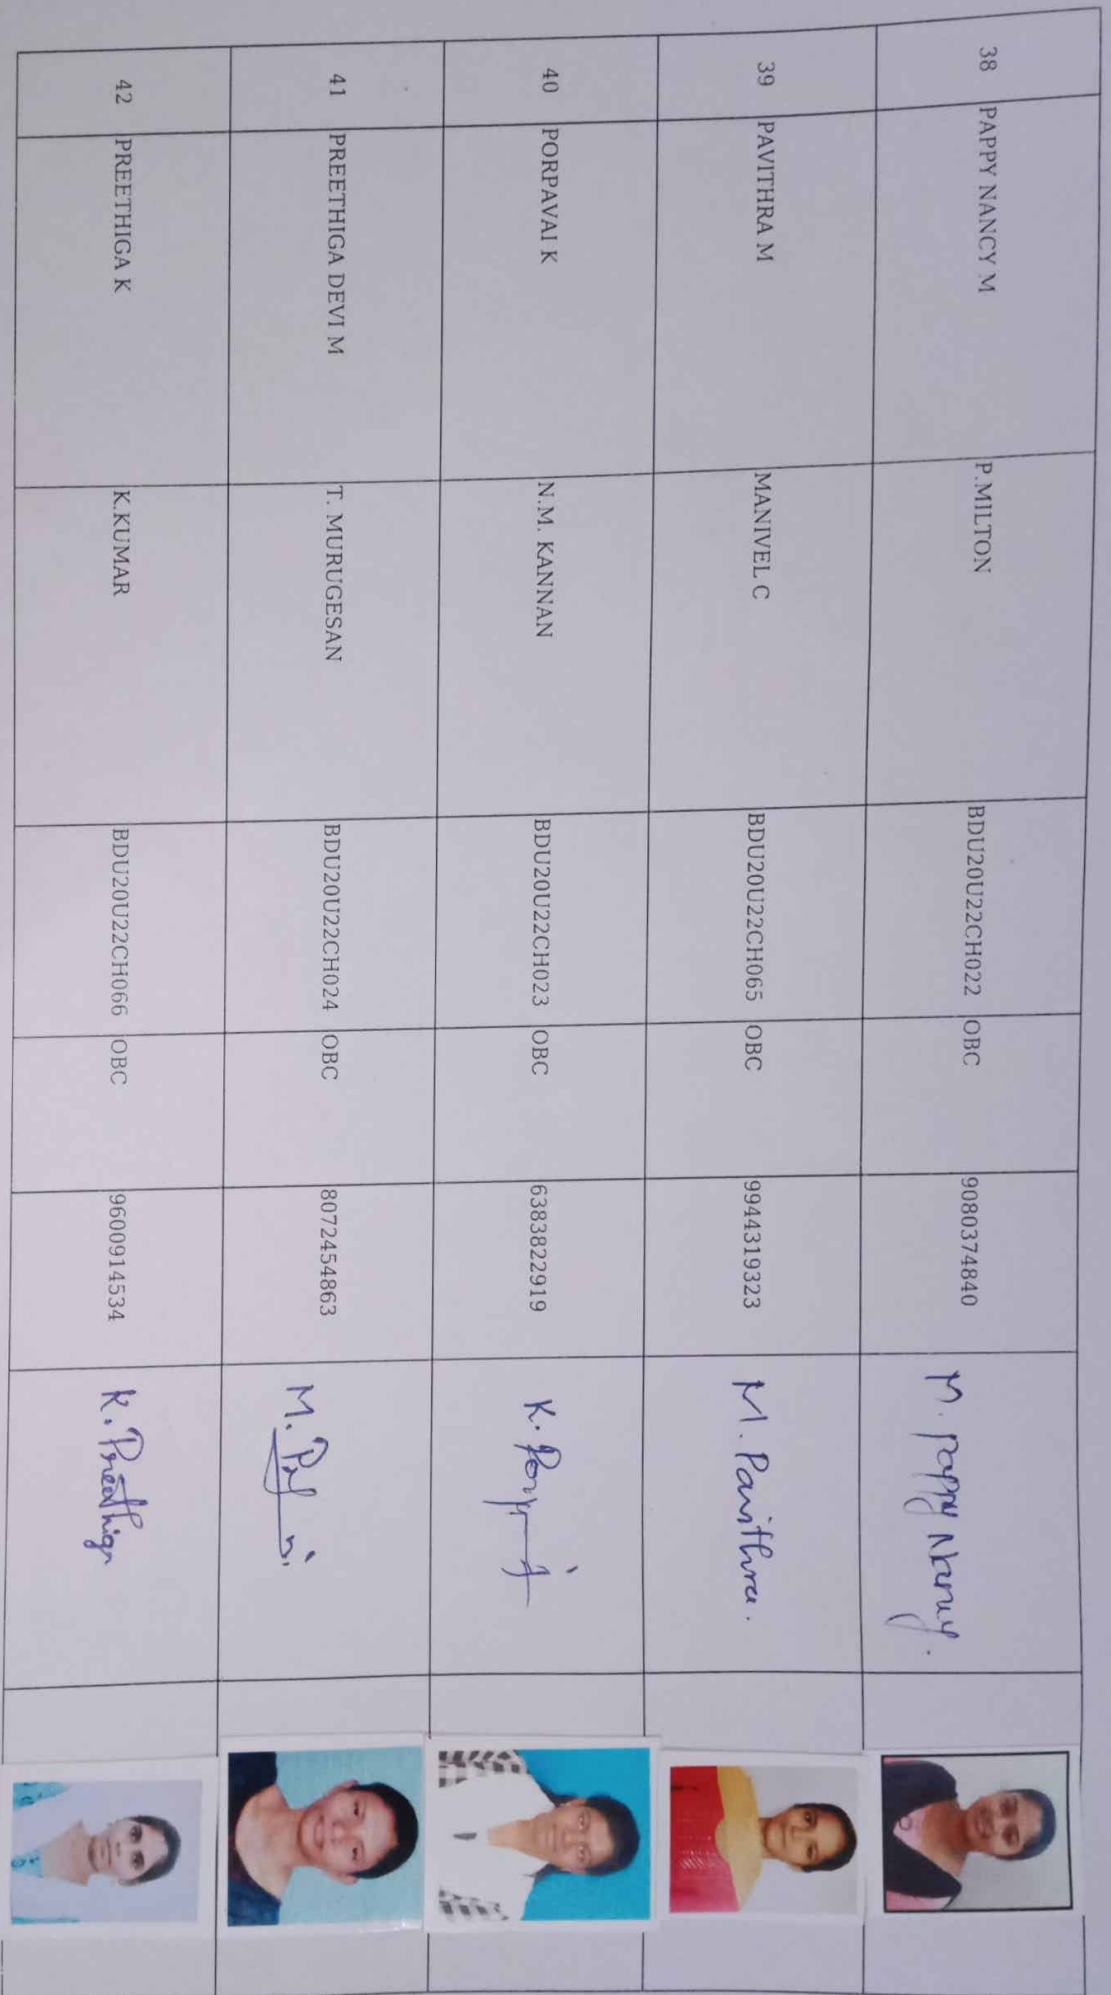 38 PAPPY NANCY M P.MILTON BDU20U22CH022 OBC 9080374840 M. Pappy Nancy.
39 PAVITHRA M MANIVEL C BDU20U22CH065 OBC 9944319323 M. Pavithra.
40 PORPAVAI K N.M. KANNAN BDU20U22CH023 OBC 6383822919 K.
41 PREETHIGA DEVI M T. MURUGESAN BDU20U22CH024 OBC 8072454863 M.
42 PREETHIGA K K.KUMAR BDU20U22CH066 OBC 9600914534 K. Preethiga